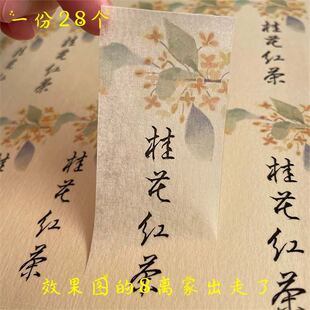 一份28个
桂花红茶
桂花红茶
桂花红茶
桂花红茶
桂花红茶
效果图的8离家出走了